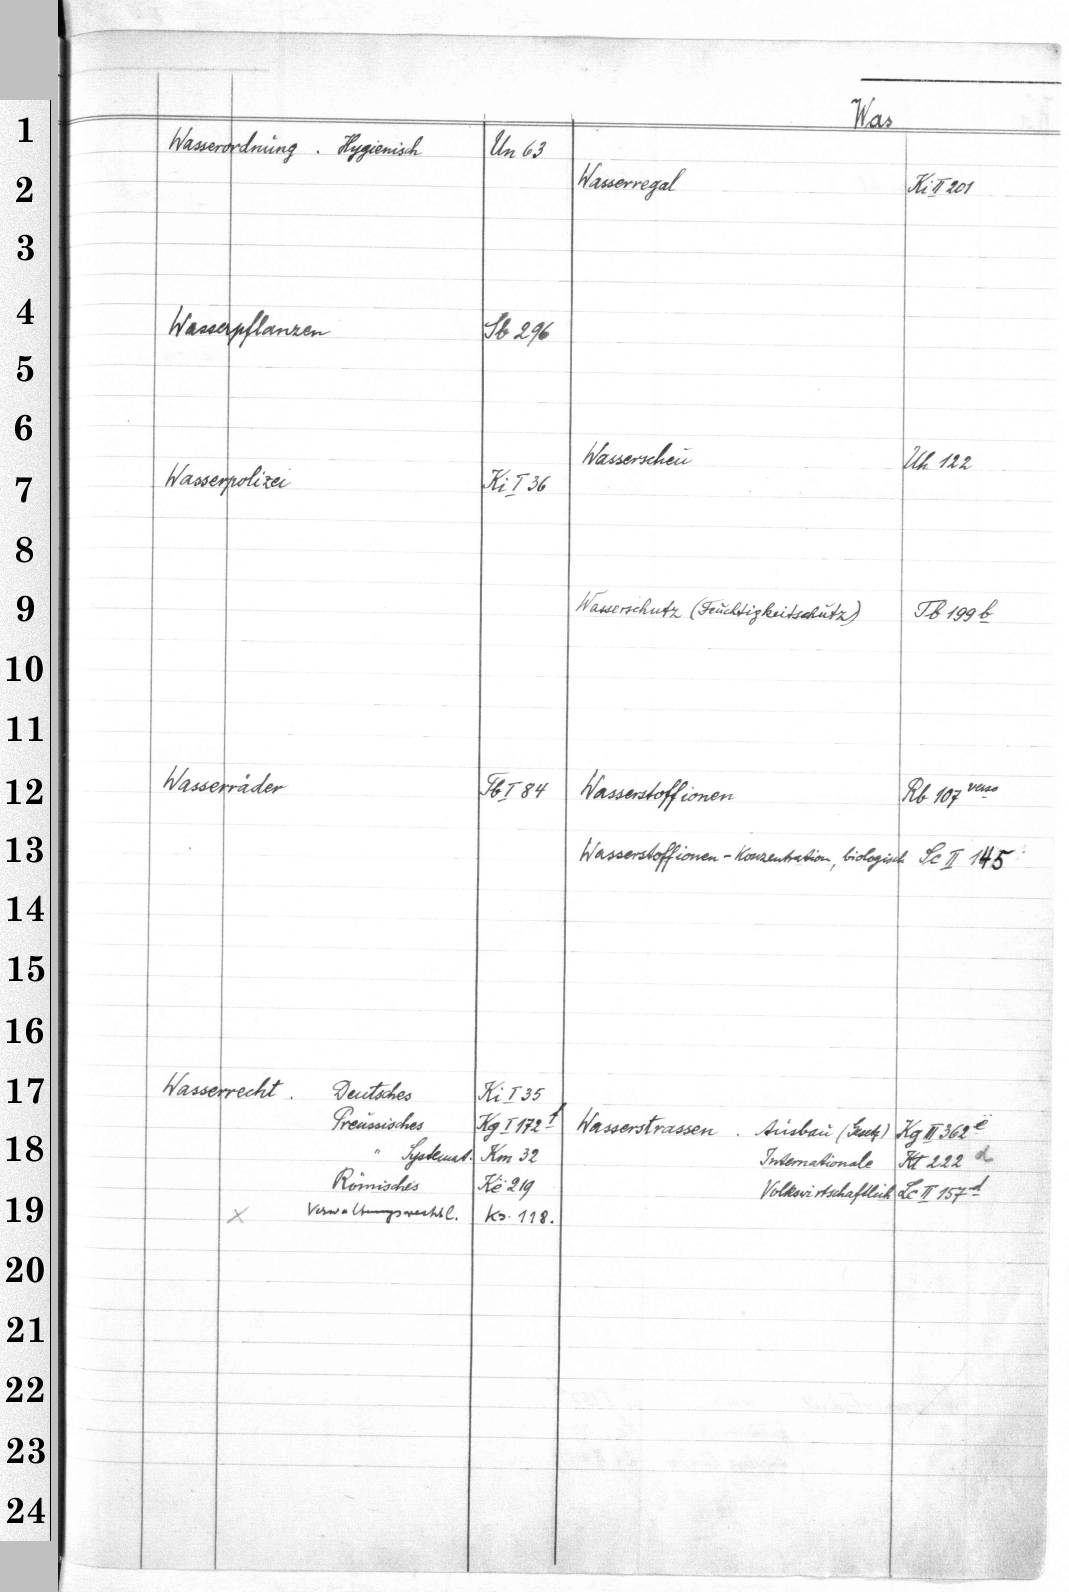 Was
Wasserordnung . Hygienisch Un 63
Wasserpflanzen Sb 296
Wasserpolizei Ki I 36
Wasserräder Tb I 84
Wasserrecht . Deutsches Ki I 35
Preussisches Kg I 172 f
" Systemat. Km 32
Römisches Ke 219
x Verwaltungsrechtl. Ks. 118.
Wasserregal Ki II 201
Wasserscheu Uh 122
Wasserschutz (Feuchtigkeitschutz) Tb 199 b
Wasserstoffionen Rb 107 verso
Wasserstoffionen - Konzentration, biologisch Sc II 145
Wasserstrassen . Ausbau (Gesetz) Kg III 362 e
Internationale Kt 222 d
Volkswirtschaftlich Lc II 157 d
1
2
3
4
5
6
7
8
9
10
11
12
13
14
15
16
17
18
19
20
21
22
23
24